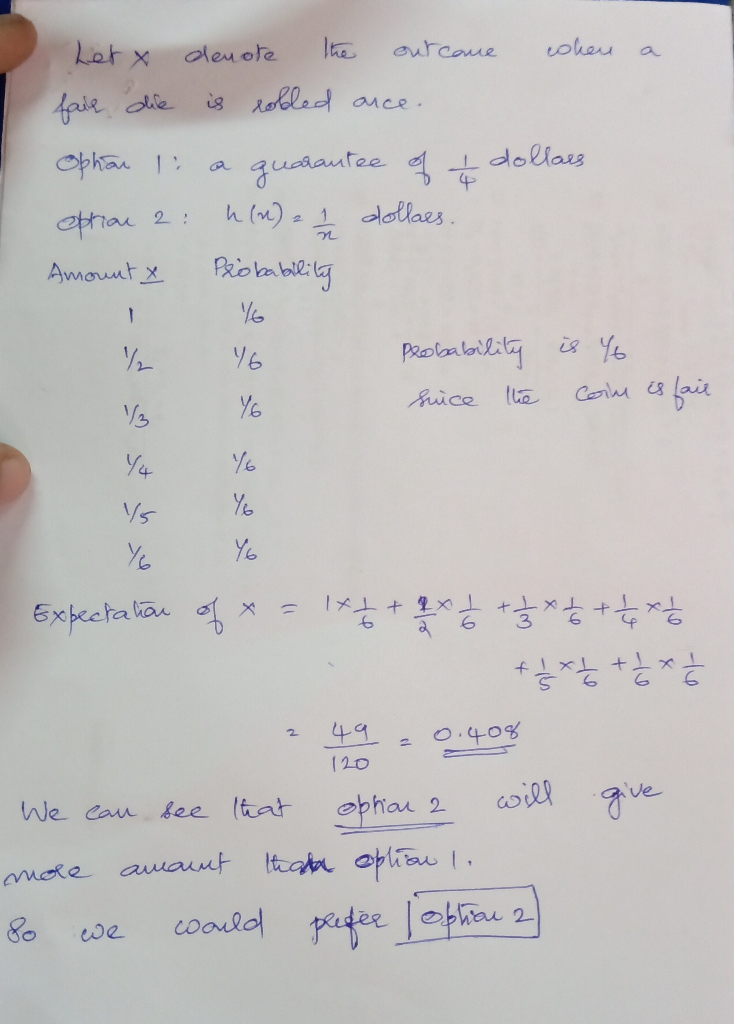 Let x denote the outcome when a
fair die is rolled once.
Option 1: a guarantee of 1/4 dollars
option 2: h(x) = 1/x dollars.
Amount x Probability
1 1/6
1/2 1/6 Probability is 1/6
1/3 1/6 since the coin is fair
1/4 1/6
1/5 1/6
1/6 1/6
Expectation of x = 1×1/6 + 1/2×1/6 + 1/3×1/6 + 1/4×1/6
+ 1/5×1/6 + 1/6×1/6
= 49/120 = 0.408
We can see that option 2 will give
more amount than option 1.
So we would prefer option 2